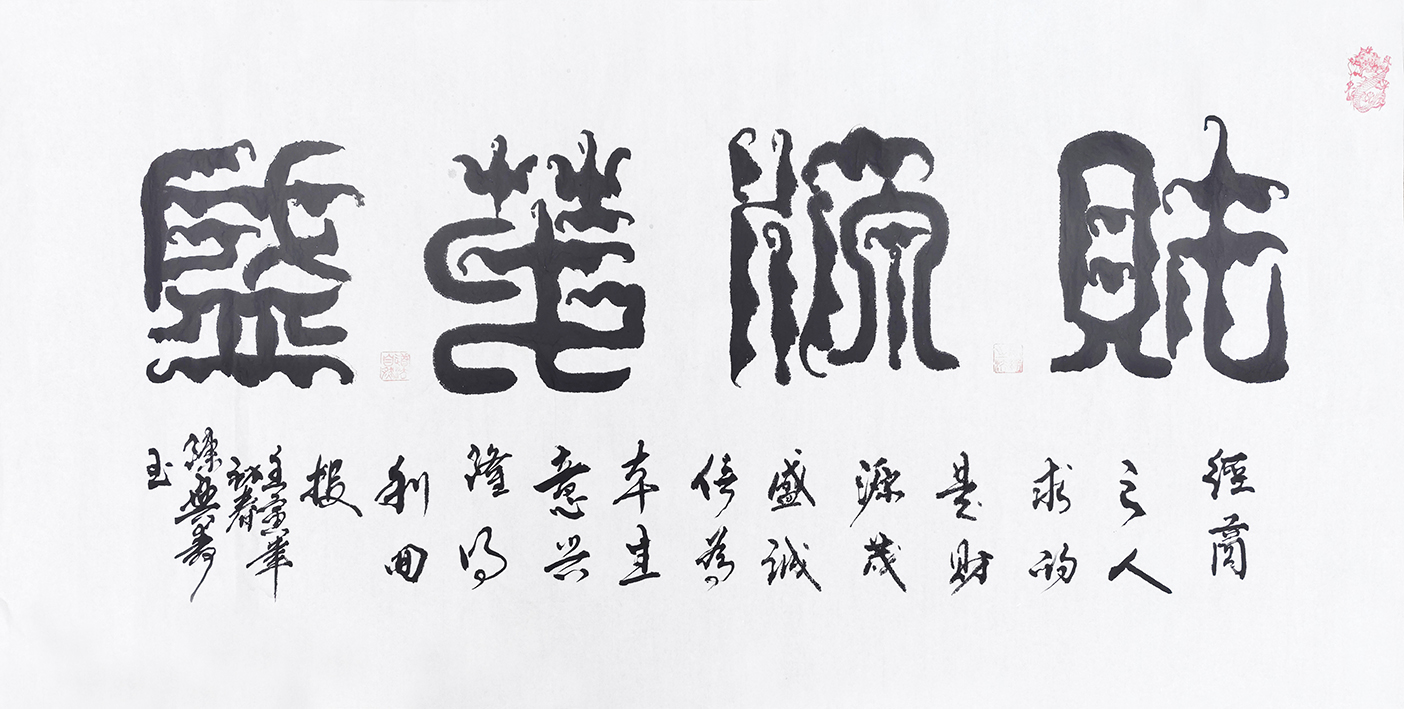 財源茂盛
經商
之人
求的
是財
源茂
盛誠
信為
本生
意兴
隆得
利回
报
壬寅年
初春
陳興壽
玉